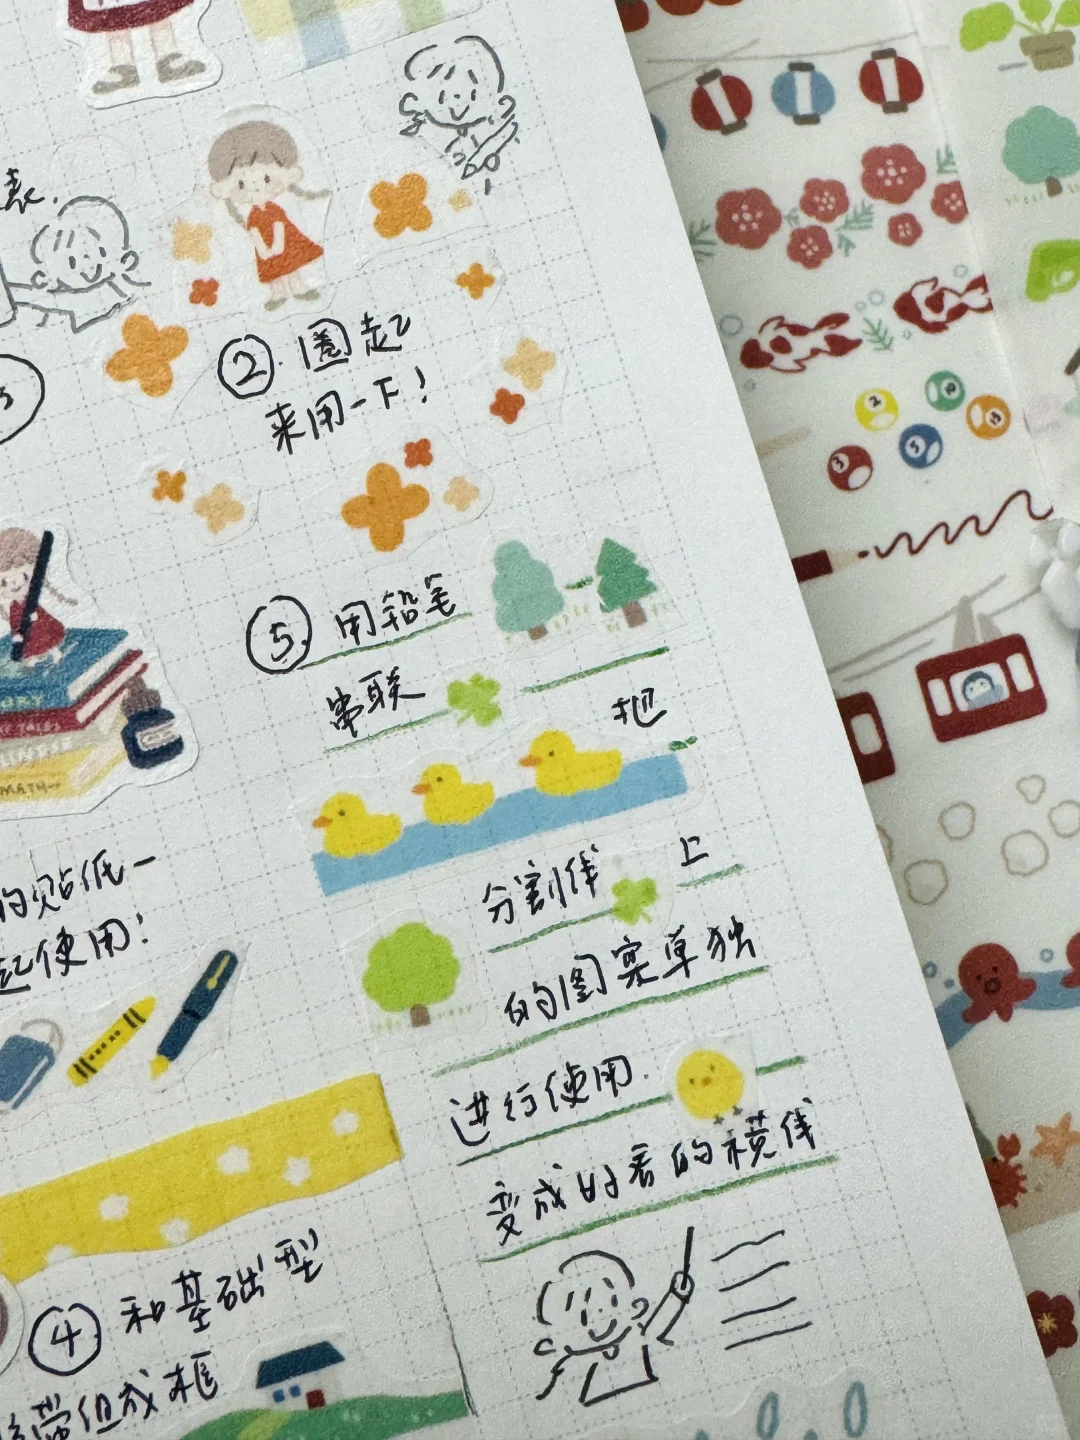 表.
②.圈起
来用一下!
3
⑤.用铅笔
串联
把
分割线 上
的图案单独
进行使用.
变成好看的横线
的贴纸一
起使用!
④和基础型
胶带组成框
MATH
2
10
3
5